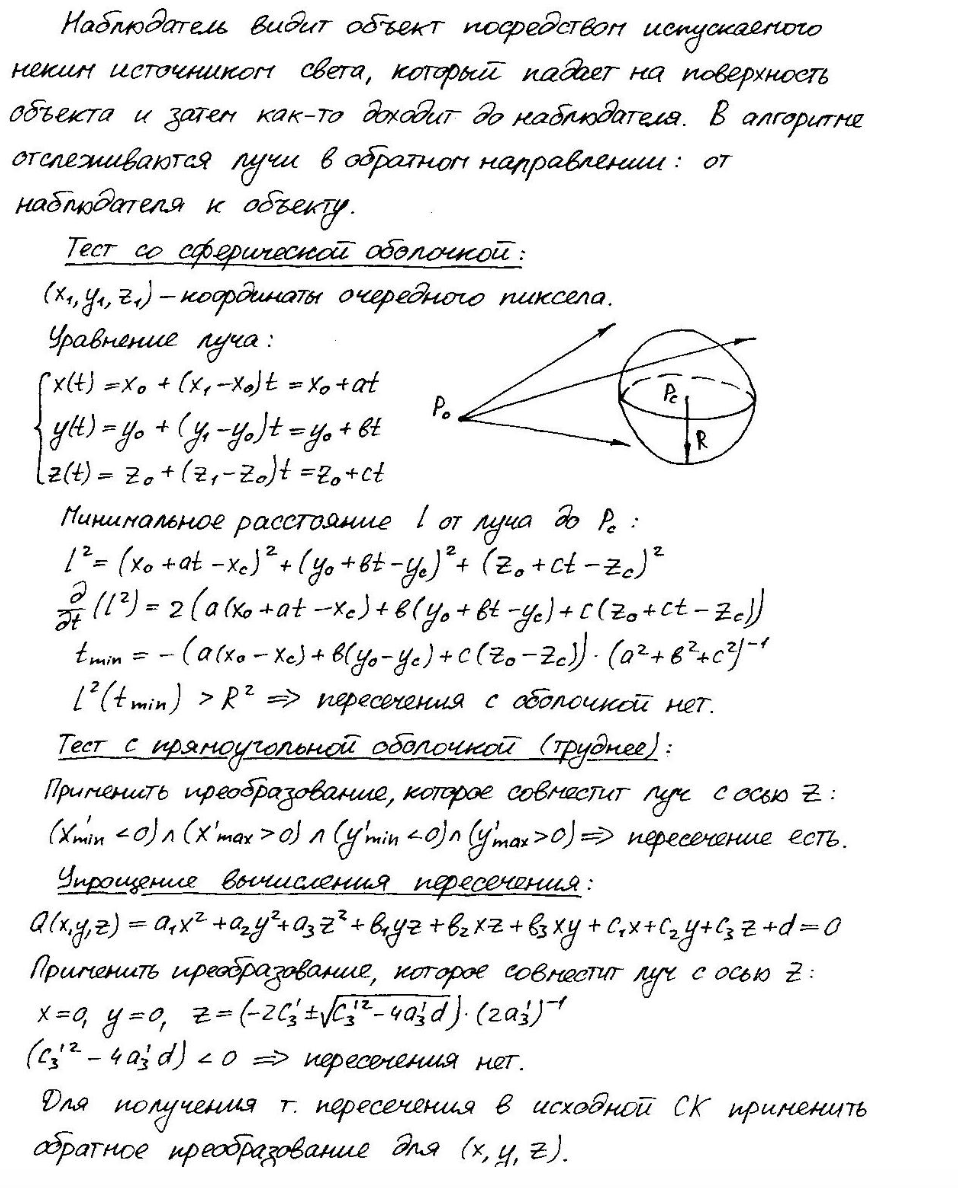 Наблюдатель видит объект посредством испускаемого
неким источником света, который падает на поверхность
объекта и затем как-то доходит до наблюдателя. В алгоритме
отслеживаются лучи в обратном направлении: от
наблюдателя к объекту.
Тест со сферической оболочкой:
(x₁, y₁, z₁) – координаты очередного пиксела.
Уравнение луча:
x(t) = x₀ + (x₁ – x₀)t = x₀ + at
y(t) = y₀ + (y₁ – y₀)t = y₀ + вt
z(t) = z₀ + (z₁ – z₀)t = z₀ + ct
P₀
Pc
R
Минимальное расстояние l от луча до Pc:
l² = (x₀ + at – xc)² + (y₀ + вt – yc)² + (z₀ + ct – zc)²
∂/∂t (l²) = 2(a(x₀ + at – xc) + в(y₀ + вt – yc) + c(z₀ + ct – zc))
tmin = – (a(x₀ – xc) + в(y₀ – yc) + c(z₀ – zc)) · (a² + в² + c²)⁻¹
l²(tmin) > R² => пересечения с оболочкой нет.
Тест с прямоугольной оболочкой (труднее):
Применить преобразование, которое совместит луч с осью Z:
(x'min < 0) ∧ (x'max > 0) ∧ (y'min < 0) ∧ (y'max > 0) => пересечение есть.
Упрощение вычисления пересечения:
Q(x,y,z) = a₁x² + a₂y² + a₃z² + в₁yz + в₂xz + в₃xy + c₁x + c₂y + c₃z + d = 0
Применить преобразование, которое совместит луч с осью Z:
x = 0, y = 0, z = (–2c₃' ± √(c₃'² – 4a₃'d)) · (2a₃')⁻¹
(c₃'² – 4a₃'d) < 0 => пересечения нет.
Для получения т. пересечения в исходной СК применить
обратное преобразование для (x, y, z).